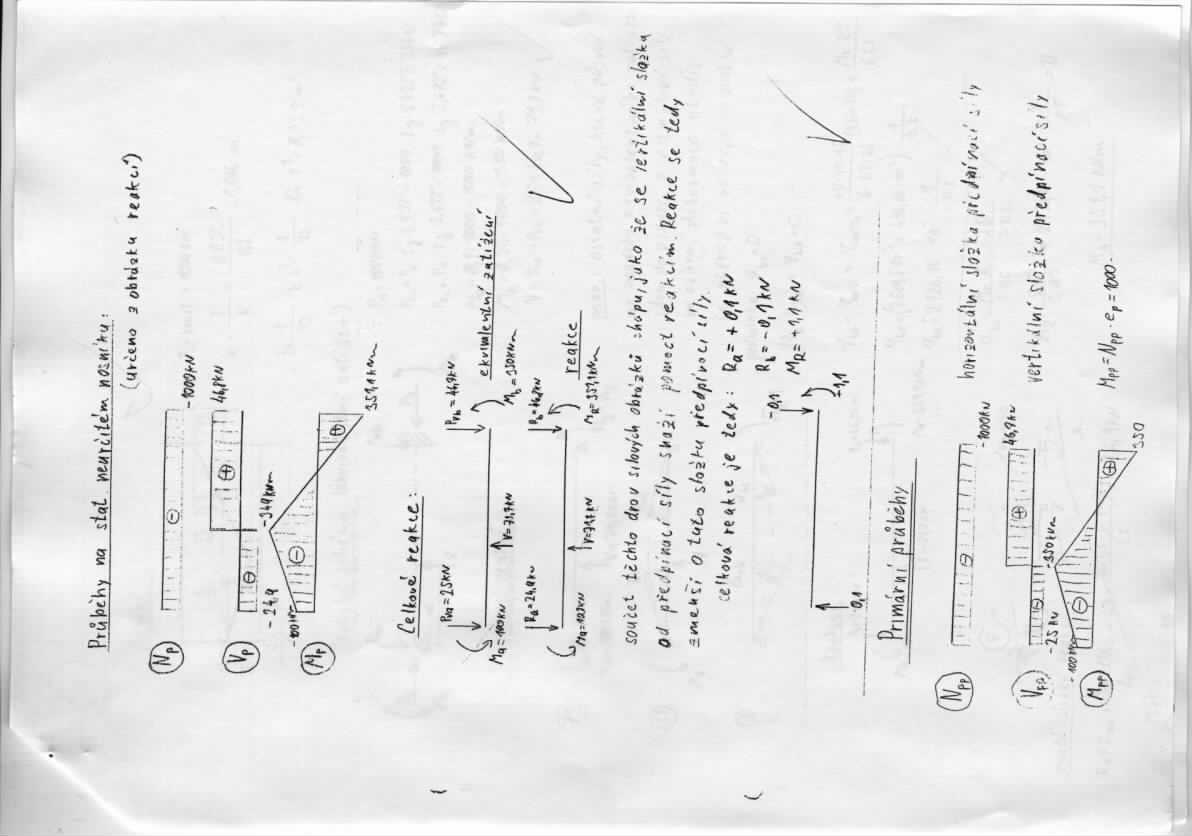 Průběhy na stat. neurčitém nosníku:
(určeno z obrázku reakcí)
Np
-1000kN
Vp
46,9kN
-24,9
-349kNm
Mp
-100kNm
Celkové reakce:
Pva=25kN
Pvb=46,9kN
Ma=100kN
V=71,9kN
Mb=350kNm
ekvivalentní zatížení
Ra=24,9kN
reakce
součet těchto dvou silových obrázků chápu, jako že se vertikální složka
od předpínací síly snaží pomoct reakcím. Reakce se tedy
zmenší o tuto složku předpínací síly.
celková reakce je tedy: Ra = +0,1kN
Rb = -0,1kN
MR = +1,1kN
0,1
-0,1
1,1
Primární průběhy
Npp
-1000kN
horizontální složka předpínací síly
46,9kN
vertikální složka předpínací síly
-25kN
-350kNm
Mpp
-100kNm
350
Mpp = Npp · ep = 1000·